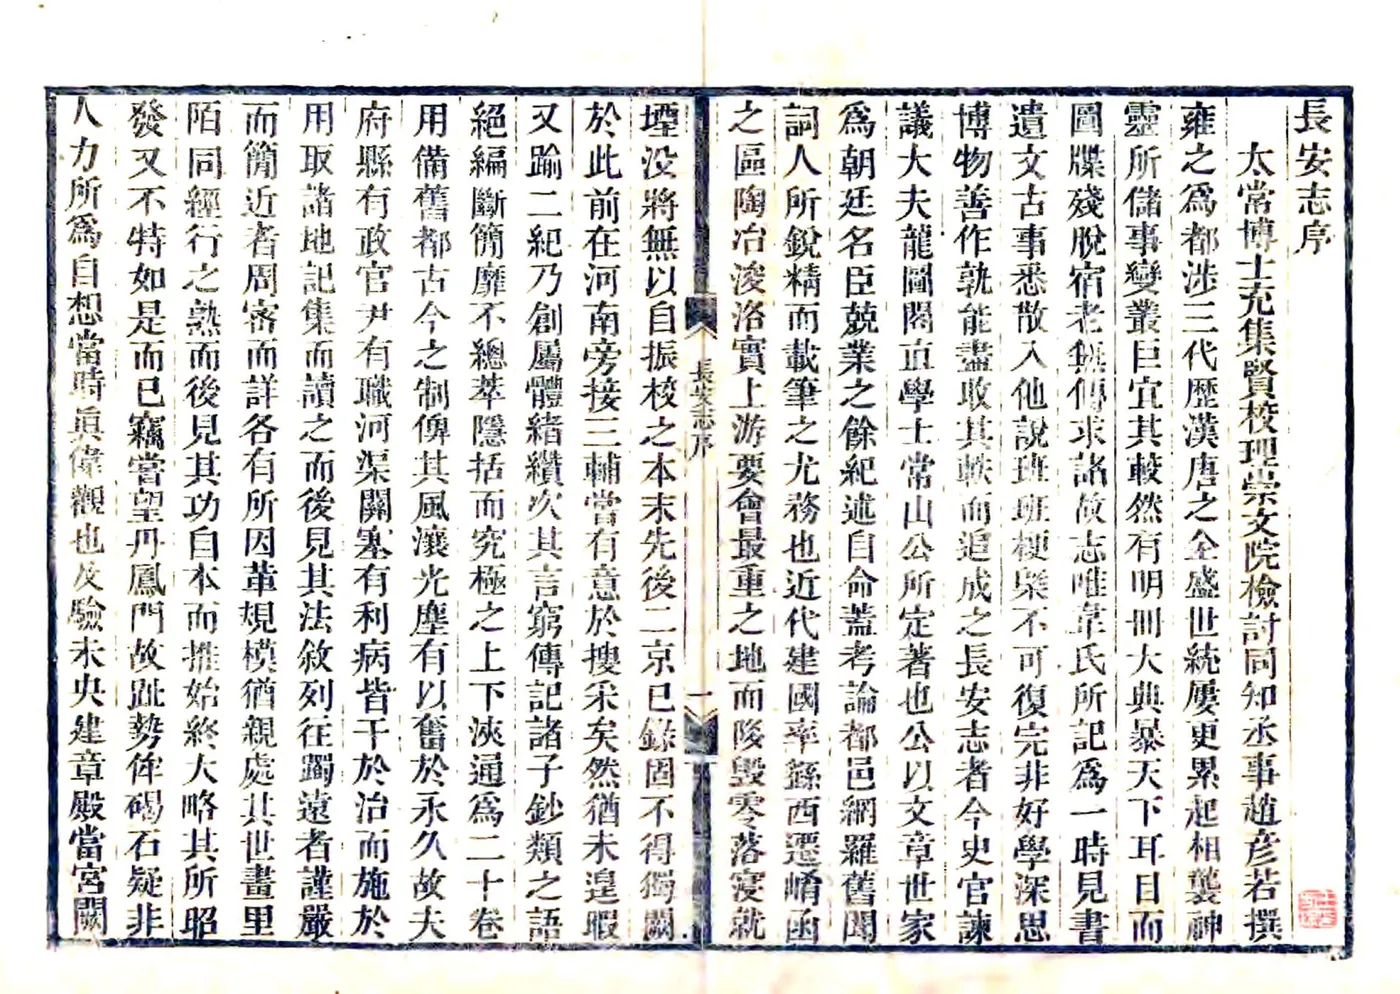 長安志序
太常博士充集賢校理崇文院檢討同知丞事趙彦若撰
雍之爲都涉三代歷漢唐之全盛世統屢更累起相襲神
靈所儲事變叢巨宜其較然有明冊大典暴天下耳目而
圖牒殘脫宿老無傳求諸故志唯韋氏所記爲一時見書
遺文古事悉散入他說班班梗槩不可復完非好學深思
博物善作孰能盡收其軼而追成之長安志者今史官諫
議大夫龍圖閣直學士常山公所定著也公以文章世家
爲朝廷名臣兢業之餘紀述自命葢考論都邑網羅舊聞
詞人所銳精而載筆之尤務也近代建國率繇西遷崤函
之區陶冶浚洛實上游要會最重之地而陵毀零落寖就
堙没將無以自振校之本末先後二京已錄固不得獨闕
於此前在河南旁接三輔嘗有意於搜采矣然猶未遑暇
又踰二紀乃創屬體緒纘次其言窮傳記諸子鈔類之語
絕編斷簡靡不總萃隱括而究極之上下浹通爲二十卷
用備舊都古今之制俾其風瀼光塵有以奮於永久故夫
府縣有政官尹有職河渠關塞有利病皆干於治而施於
用取諸地記集而讀之而後見其法敘列往躅遠者謹嚴
而簡近者周宻而詳各有所因葷規模猶親處其世畫里
陌同經行之熟而後見其功自本而推始終大略其所昭
發又不特如是而已竊嘗望丹鳳門故趾勢侔碣石疑非
人力所爲自想當時眞偉觀也及驗未央建章殿當宮闕
長安志序
一